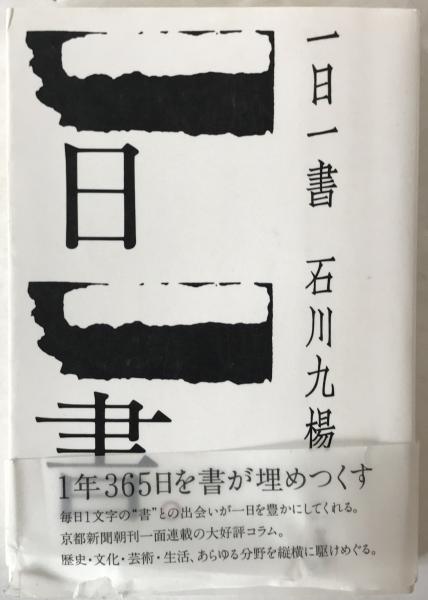 一日一書　石川九楊
一日一書
1年365日を書が埋めつくす
毎日1文字の“書”との出会いが一日を豊かにしてくれる。
京都新聞朝刊一面連載の大好評コラム。
歴史・文化・芸術・生活、あらゆる分野を縦横に駆けめぐる。